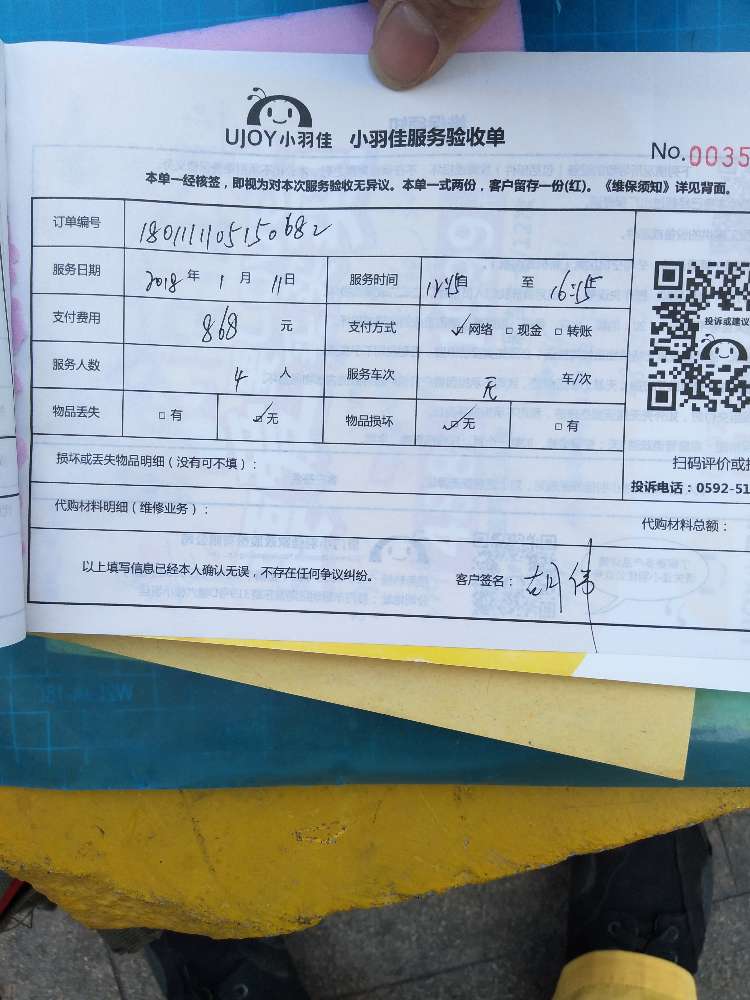 UJOY小羽佳 小羽佳服务验收单
No.0035
本单一经核签，即视为对本次服务验收无异议。本单一式两份，客户留存一份(红)。《维保须知》详见背面。
订单编号 180111105150682
服务日期 2018 年 1 月 11 日 服务时间 12:45 自 至 16:55
支付费用 868 元 支付方式 ☑网络 □现金 □转账
投诉或建议
服务人数 4 人 服务车次 无 车/次
物品丢失 □有 ☑无 物品损坏 ☑无 □有
损坏或丢失物品明细（没有可不填）：
扫码评价或
投诉电话：0592-51
代购材料明细（维修业务）：
代购材料总额：
以上填写信息已经本人确认无误，不存在任何争议纠纷。 客户签名：